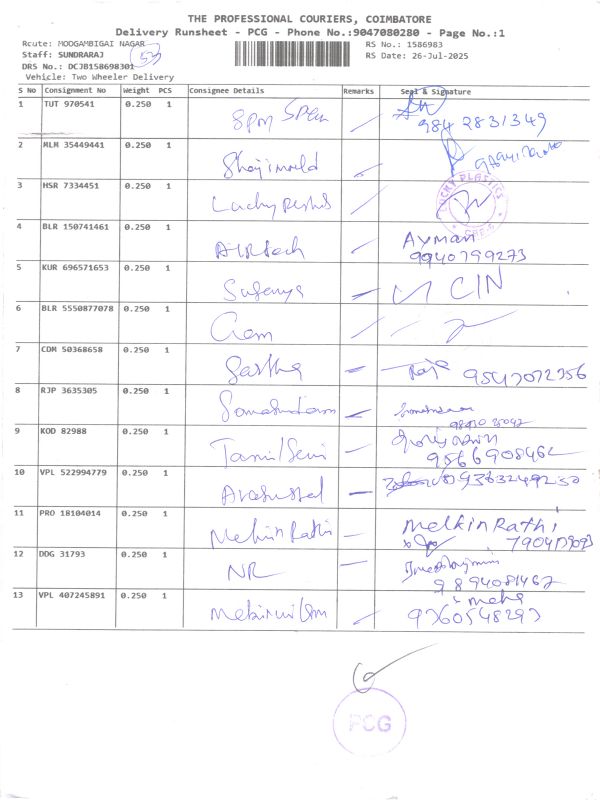 THE PROFESSIONAL COURIERS, COIMBATORE
Delivery Runsheet - PCG - Phone No.:9047080280 - Page No.:1
Route: MOOGAMBIGAI NAGAR
Staff: SUNDRARAJ
DRS No.: DCJB158698301
Vehicle: Two Wheeler Delivery
RS No.: 1586983
RS Date: 26-Jul-2025
S No Consignment No Weight PCS Consignee Details Remarks Seal & Signature
1 TUT 970541 0.250 1 984 2831349
2 MLM 35449441 0.250 1
3 HSR 7334451 0.250 1 LUCKY PLASTICS
4 BLR 150741461 0.250 1 AIRtech Ayman
9940799273
5 KUR 696571653 0.250 1 Suganya CIN
6 BLR 5550877078 0.250 1
7 COM 50368658 0.250 1 Raja
8 RJP 3635305 0.250 1 Somasundaram
9 KOD 82988 0.250 1 TamilSelvi 9566908462
10 VPL 522994779 0.250 1 9363249230
11 PRO 18104014 0.250 1 Melkin Rathi Melkin Rathi
12 DDG 31793 0.250 1 NR
9894081462
13 VPL 407245891 0.250 1
9360548293
PCG